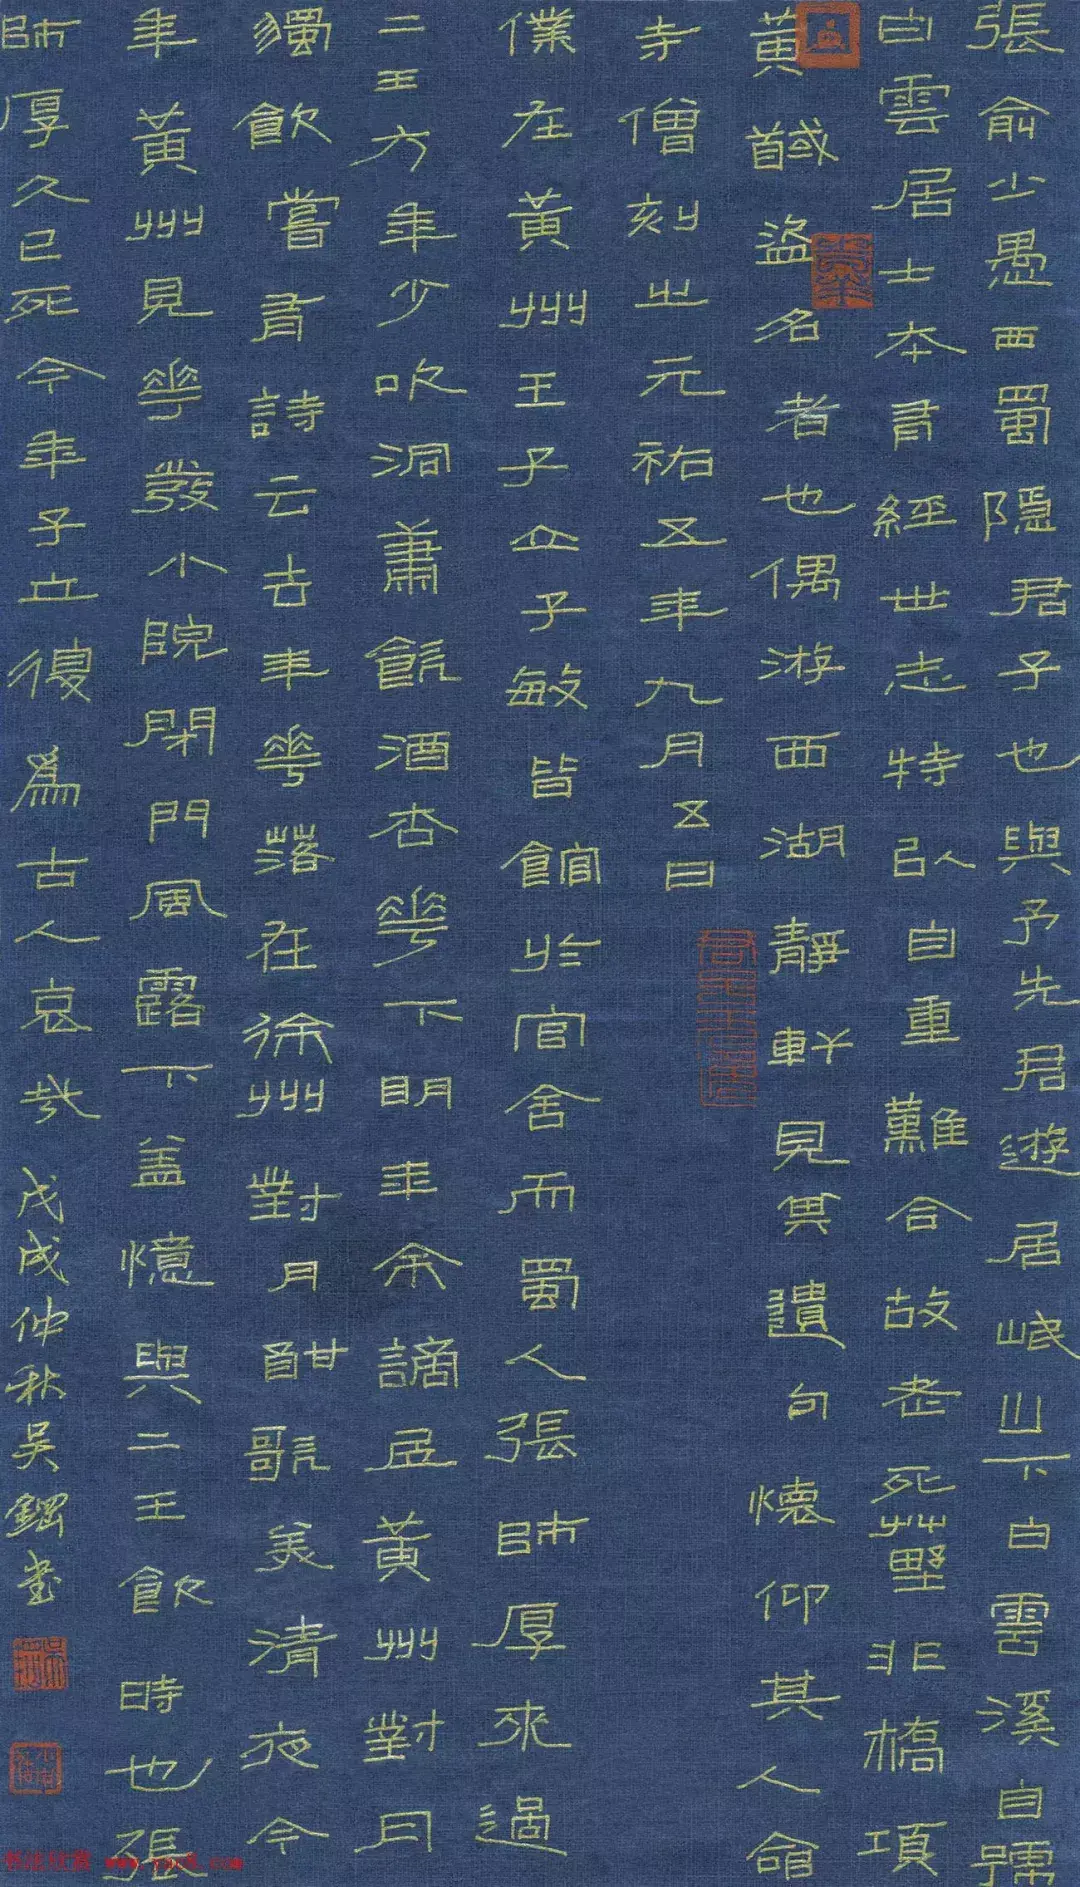 張俞少愚西蜀隱君子也與予先君遊居岷山下白雲溪自號
白雲居士本有經世志特以自重難合故老死草野非槁項
黃馘盜名者也偶游西湖靜軒見其遺句懷仰其人命
寺僧刻之元祐五年九月五日
僕在黃州王子立子敏皆館於官舍而蜀人張師厚來過
二王方年少吹洞蕭飲酒杏花下明年余謫居黃州對月
獨飲嘗有詩云去年花落在徐州對月酣歌美清夜今
年黃州見花發小院閉門風露下盖憶與二王飲時也張
師厚久已死今年子立復為古人哀哉
戊戌仲秋吳鋼書
www.yac8.com